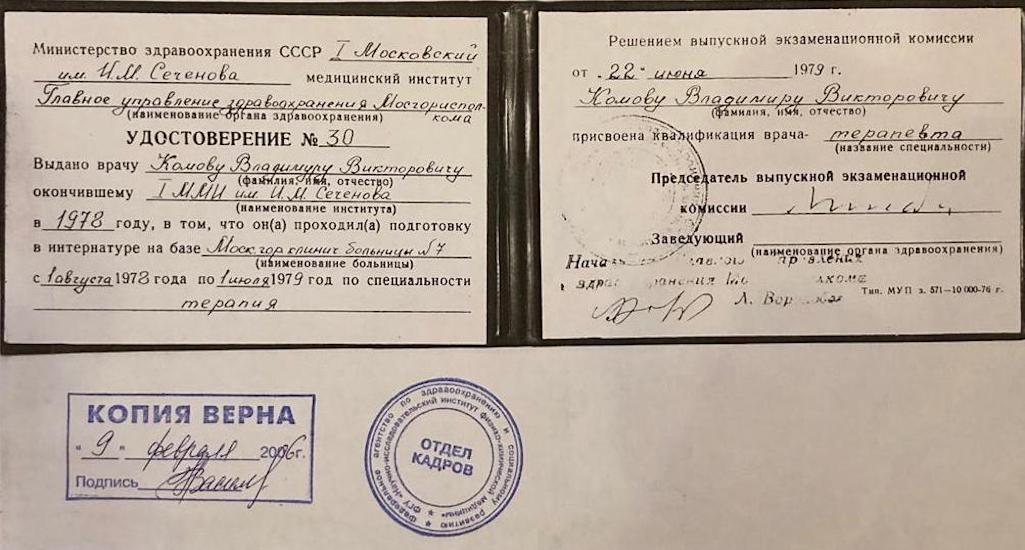 Министерство здравоохранения СССР I Московский
им. И.М. Сеченова медицинский институт
Главное управление здравоохранения Мосгориспол-
(наименование органа здравоохранения) кома
УДОСТОВЕРЕНИЕ № 30
Выдано врачу Комову Владимиру Викторовичу
(фамилия, имя, отчество)
окончившему I ММИ им. И.М. Сеченова
(наименование института)
в 1978 году, в том, что он(а) проходил(а) подготовку
в интернатуре на базе Моск. гор. клинич. больницы №7
(наименование больницы)
с 1 августа 1978 года по 1 июля 1979 год по специальности
терапия
Решением выпускной экзаменационной комиссии
от „22" июня 1979 г.
Комову Владимиру Викторовичу
(фамилия, имя, отчество)
присвоена квалификация врача- терапевта
(название специальности)
Председатель выпускной экзаменационной
комиссии
Заведующий
(наименование органа здравоохранения)
Л.
Тип. МУП з. 571—10 000-76 г.
КОПИЯ ВЕРНА
"9" февраля 2006г.
Подпись
Федеральное агентство по здравоохранению и социальному развитию
ФГУ «Научно-исследовательский институт физико-химической медицины»
ОТДЕЛ
КАДРОВ